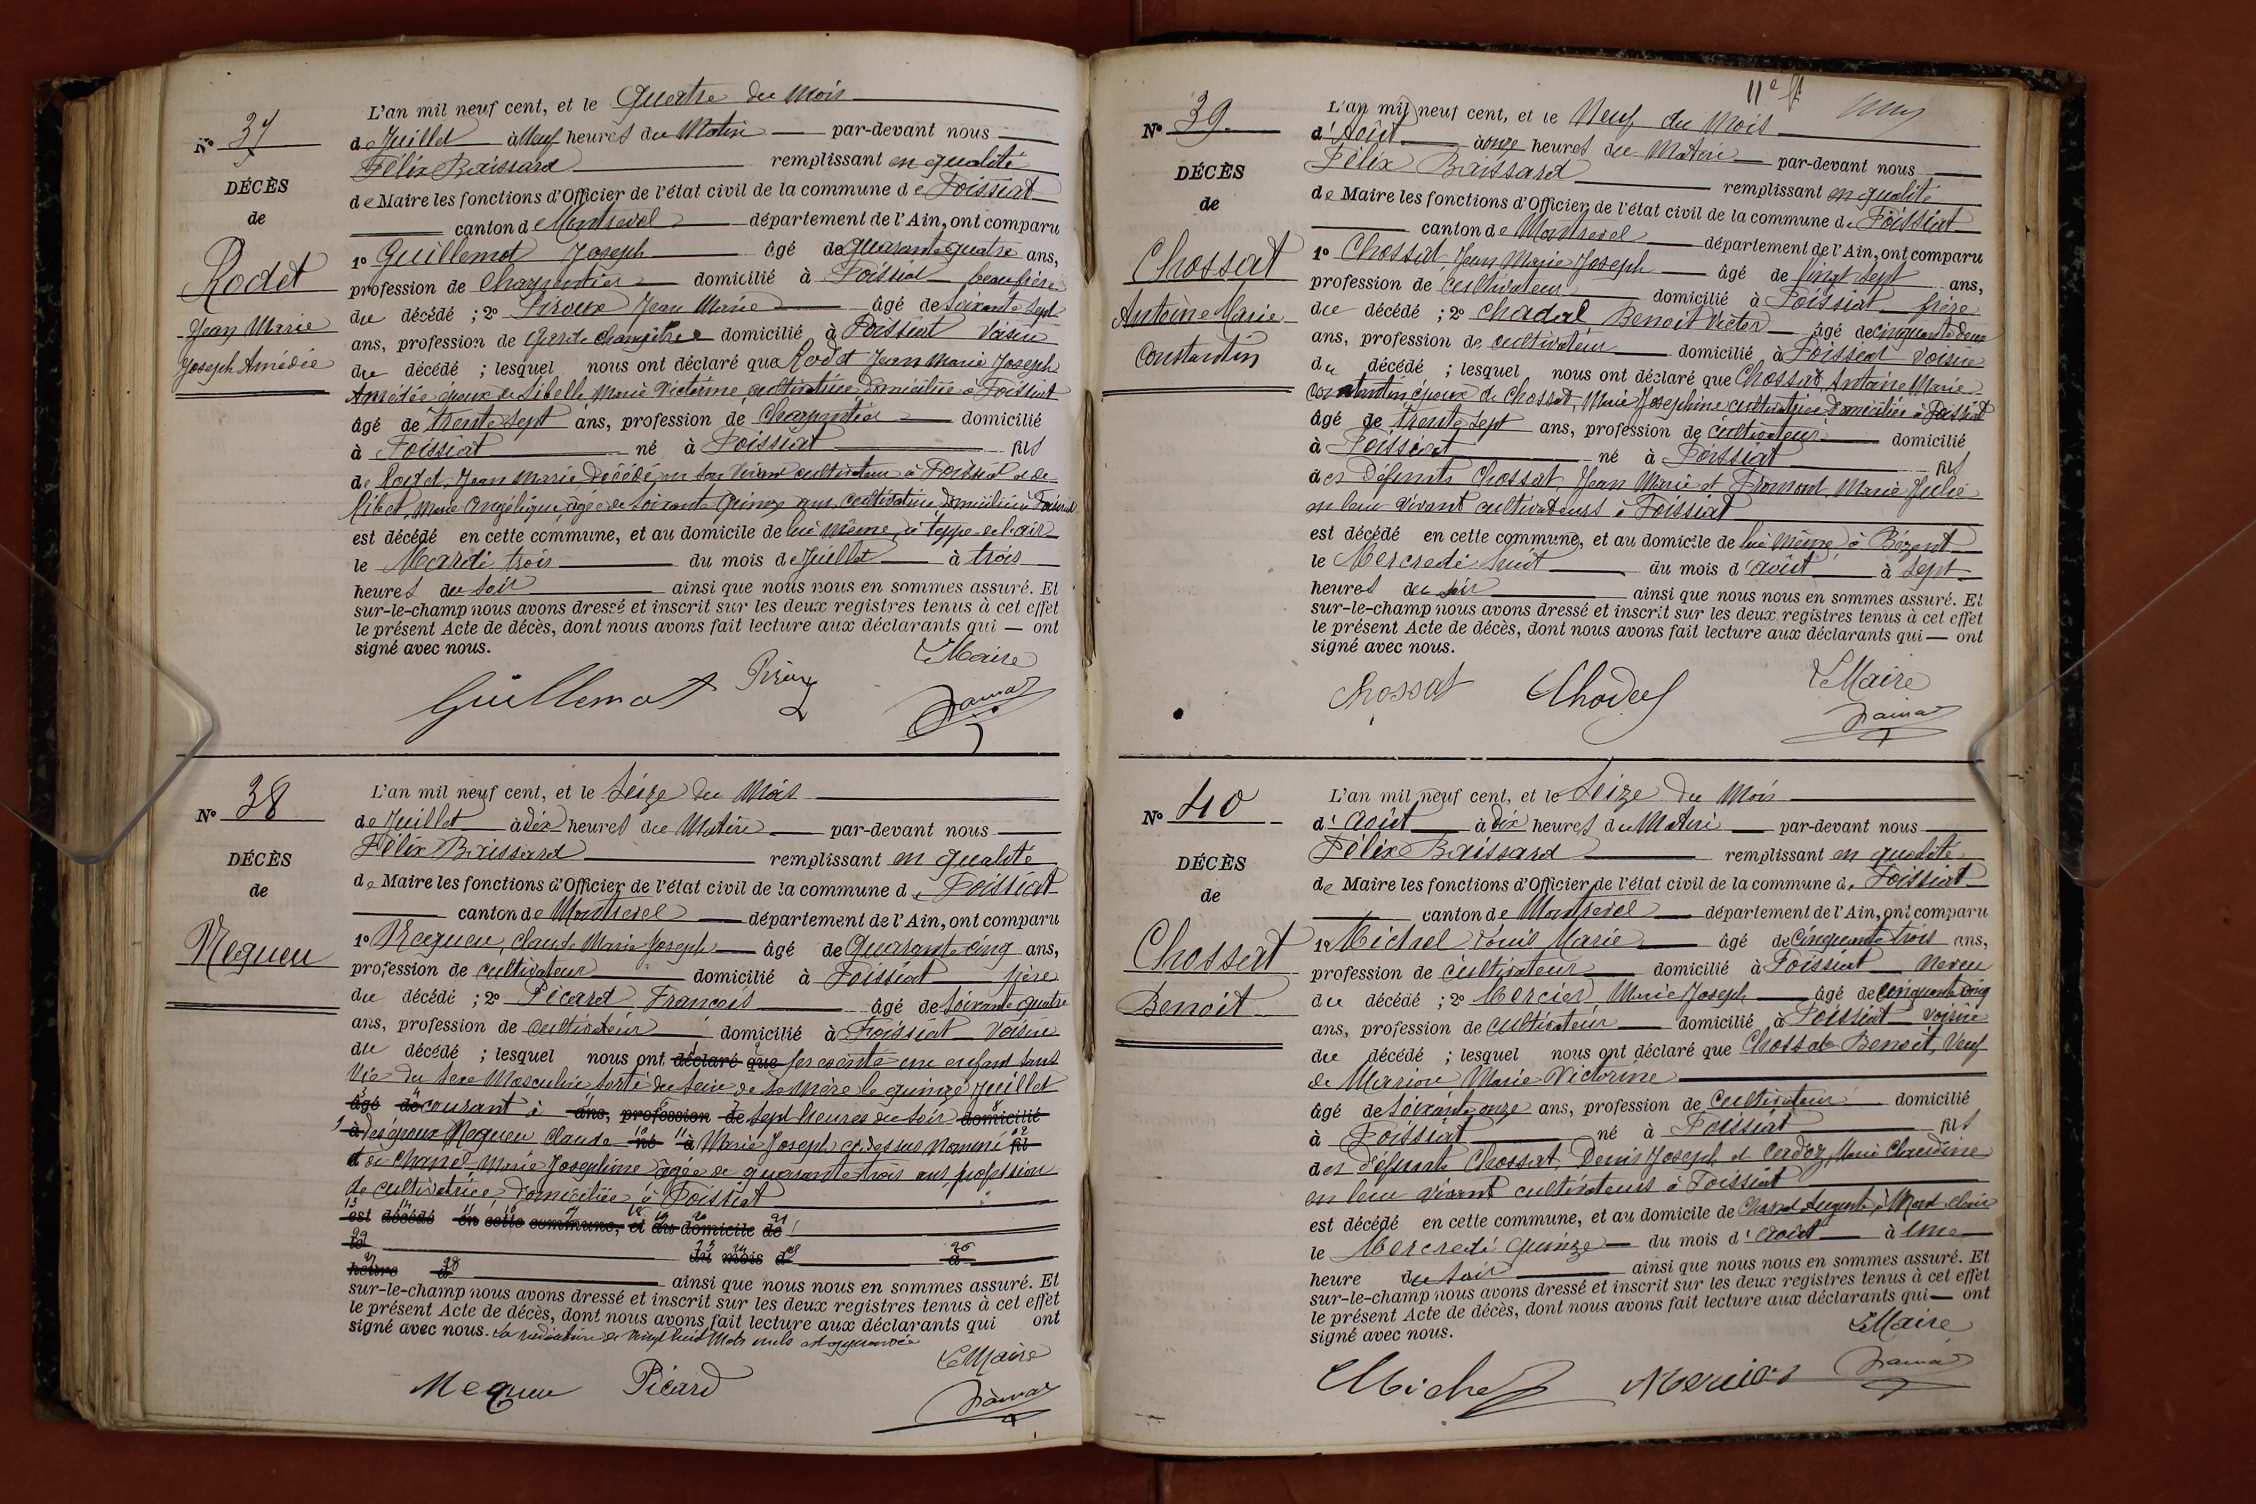 N° 37
DÉCÈS
de
Rodet
Jean Marie
Joseph Amédée
L'an mil neuf cent, et le Quatre du Mois
de Juillet à Neuf heures du Matin par-devant nous
Félix Baissard remplissant en qualité
de Maire les fonctions d'Officier de l'état civil de la commune de Foissiat
canton de Montrevel département de l'Ain, ont comparu
1° Guillemot Joseph âgé de quarante quatre ans,
profession de Charpentier domicilié à Foissiat beaufrère
du décédé ; 2° Piroux Jean Marie âgé de soixante sept
ans, profession de Garde champêtre domicilié à Foissiat Voisin
du décédé ; lesquel nous ont déclaré que Rodet Jean Marie Joseph
Amédée époux de Sibelle Marie Victorine cultivatrice domiciliée à Foissiat
âgé de trente sept ans, profession de Charpentier domicilié
à Foissiat né à Foissiat fils
de Rodet, Jean Marie Décédé en son vivant cultivateur à Foissiat et de
Marie Angélique, âgée de soixante quinze ans, cultivatrice, domiciliée à Foissiat
est décédé en cette commune, et au domicile de lui même, à
le Mardi trois du mois de Juillet à trois
heures du soir ainsi que nous nous en sommes assuré. Et
sur-le-champ nous avons dressé et inscrit sur les deux registres tenus à cet effet
le présent Acte de décès, dont nous avons fait lecture aux déclarants qui — ont
signé avec nous.
Le Maire
Guillemot Piroux
N° 38
DÉCÈS
de
Mequeu
L'an mil neuf cent, et le Seize du Mois
de Juillet à Dix heures du Matin par-devant nous
Félix Baissard remplissant en qualité
de Maire les fonctions d'Officier de l'état civil de la commune de Foissiat
canton de Montrevel département de l'Ain, ont comparu
1° Mequeu, Claude Marie Joseph âgé de quarante cinq ans,
profession de cultivateur domicilié à Foissiat père
du décédé ; 2° Picard François âgé de soixante quatre
ans, profession de cultivateur domicilié à Foissiat Voisin
du décédé ; lesquel nous ont déclaré que présenté un enfant sans
Vie du sexe Masculin sorti du sein de sa mère le quinze Juillet
âgé de courant à ans, profession de sept heures du soir domicilié
à des époux Mequeu Claude né à Marie Joseph ci dessus nommé fil
et de Chanel Marie Joséphine âgée de quarante trois ans, profession
de cultivatrice, domiciliée à Foissiat
est décédé en cette commune, et au domicile de
le du mois d à
heure d ainsi que nous nous en sommes assuré. Et
sur-le-champ nous avons dressé et inscrit sur les deux registres tenus à cet effet
le présent Acte de décès, dont nous avons fait lecture aux déclarants qui ont
signé avec nous. La radiation de vingt huit Mots nuls est approuvée
Le Maire
Mequeu Picard
11e
N° 39
DÉCÈS
de
Chossat
Antoine Marie
Constantin
L'an mil neuf cent, et le Neuf du Mois
d'Août à onze heures du Matin par-devant nous
Félix Baissard remplissant en qualité
de Maire les fonctions d'Officier de l'état civil de la commune de Foissiat
canton de Montrevel département de l'Ain, ont comparu
1° Chossat Jean Marie Joseph âgé de vingt sept ans,
profession de cultivateur domicilié à Foissiat frère
du décédé ; 2° Chadal Benoit Victor âgé de cinquante deux
ans, profession de cultivateur domicilié à Foissiat voisin
du décédé ; lesquel nous ont déclaré que Chossat, Antoine Marie
Constantin, époux de Chossat, Marie Joséphine, cultivatrice domiciliée à Foissiat
âgé de trente sept ans, profession de cultivateur domicilié
à Foissiat né à Foissiat fils
des Défunts Chossat Jean Marie et Promont, Marie Julie
en leur vivant cultivateurs à Foissiat
est décédé en cette commune, et au domicile de lui même à Bézent
le Mercredi huit du mois d'août à Sept
heures du soir ainsi que nous nous en sommes assuré. Et
sur-le-champ nous avons dressé et inscrit sur les deux registres tenus à cet effet
le présent Acte de décès, dont nous avons fait lecture aux déclarants qui — ont
signé avec nous.
Le Maire
Chossat
N° 40
DÉCÈS
de
Chossat
Benoit
L'an mil neuf cent, et le Seize du Mois
d'Août à dix heures du Matin par-devant nous
Félix Baissard remplissant en qualité
de Maire les fonctions d'Officier de l'état civil de la commune de Foissiat
canton de Montrevel département de l'Ain, ont comparu
1° Michel Louis Marie âgé de Cinquante trois ans,
profession de cultivateur domicilié à Foissiat Neveu
du décédé ; 2° Mercier Marie Joseph âgé de cinquante cinq
ans, profession de cultivateur domicilié à Foissiat voisin
du décédé ; lesquel nous ont déclaré que Chossat Benoit, Veuf
de Marion Marie Victorine
âgé de soixante onze ans, profession de cultivateur domicilié
à Foissiat né à Foissiat fils
des défunts Chossat, Denis Joseph et Cadoz, Marie Claudine
en leur vivant cultivateurs à Foissiat
est décédé en cette commune, et au domicile de
le Mercredi quinze du mois d'août à une
heure du soir ainsi que nous nous en sommes assuré. Et
sur-le-champ nous avons dressé et inscrit sur les deux registres tenus à cet effet
le présent Acte de décès, dont nous avons fait lecture aux déclarants qui — ont
signé avec nous.
Le Maire
Michel Mercier